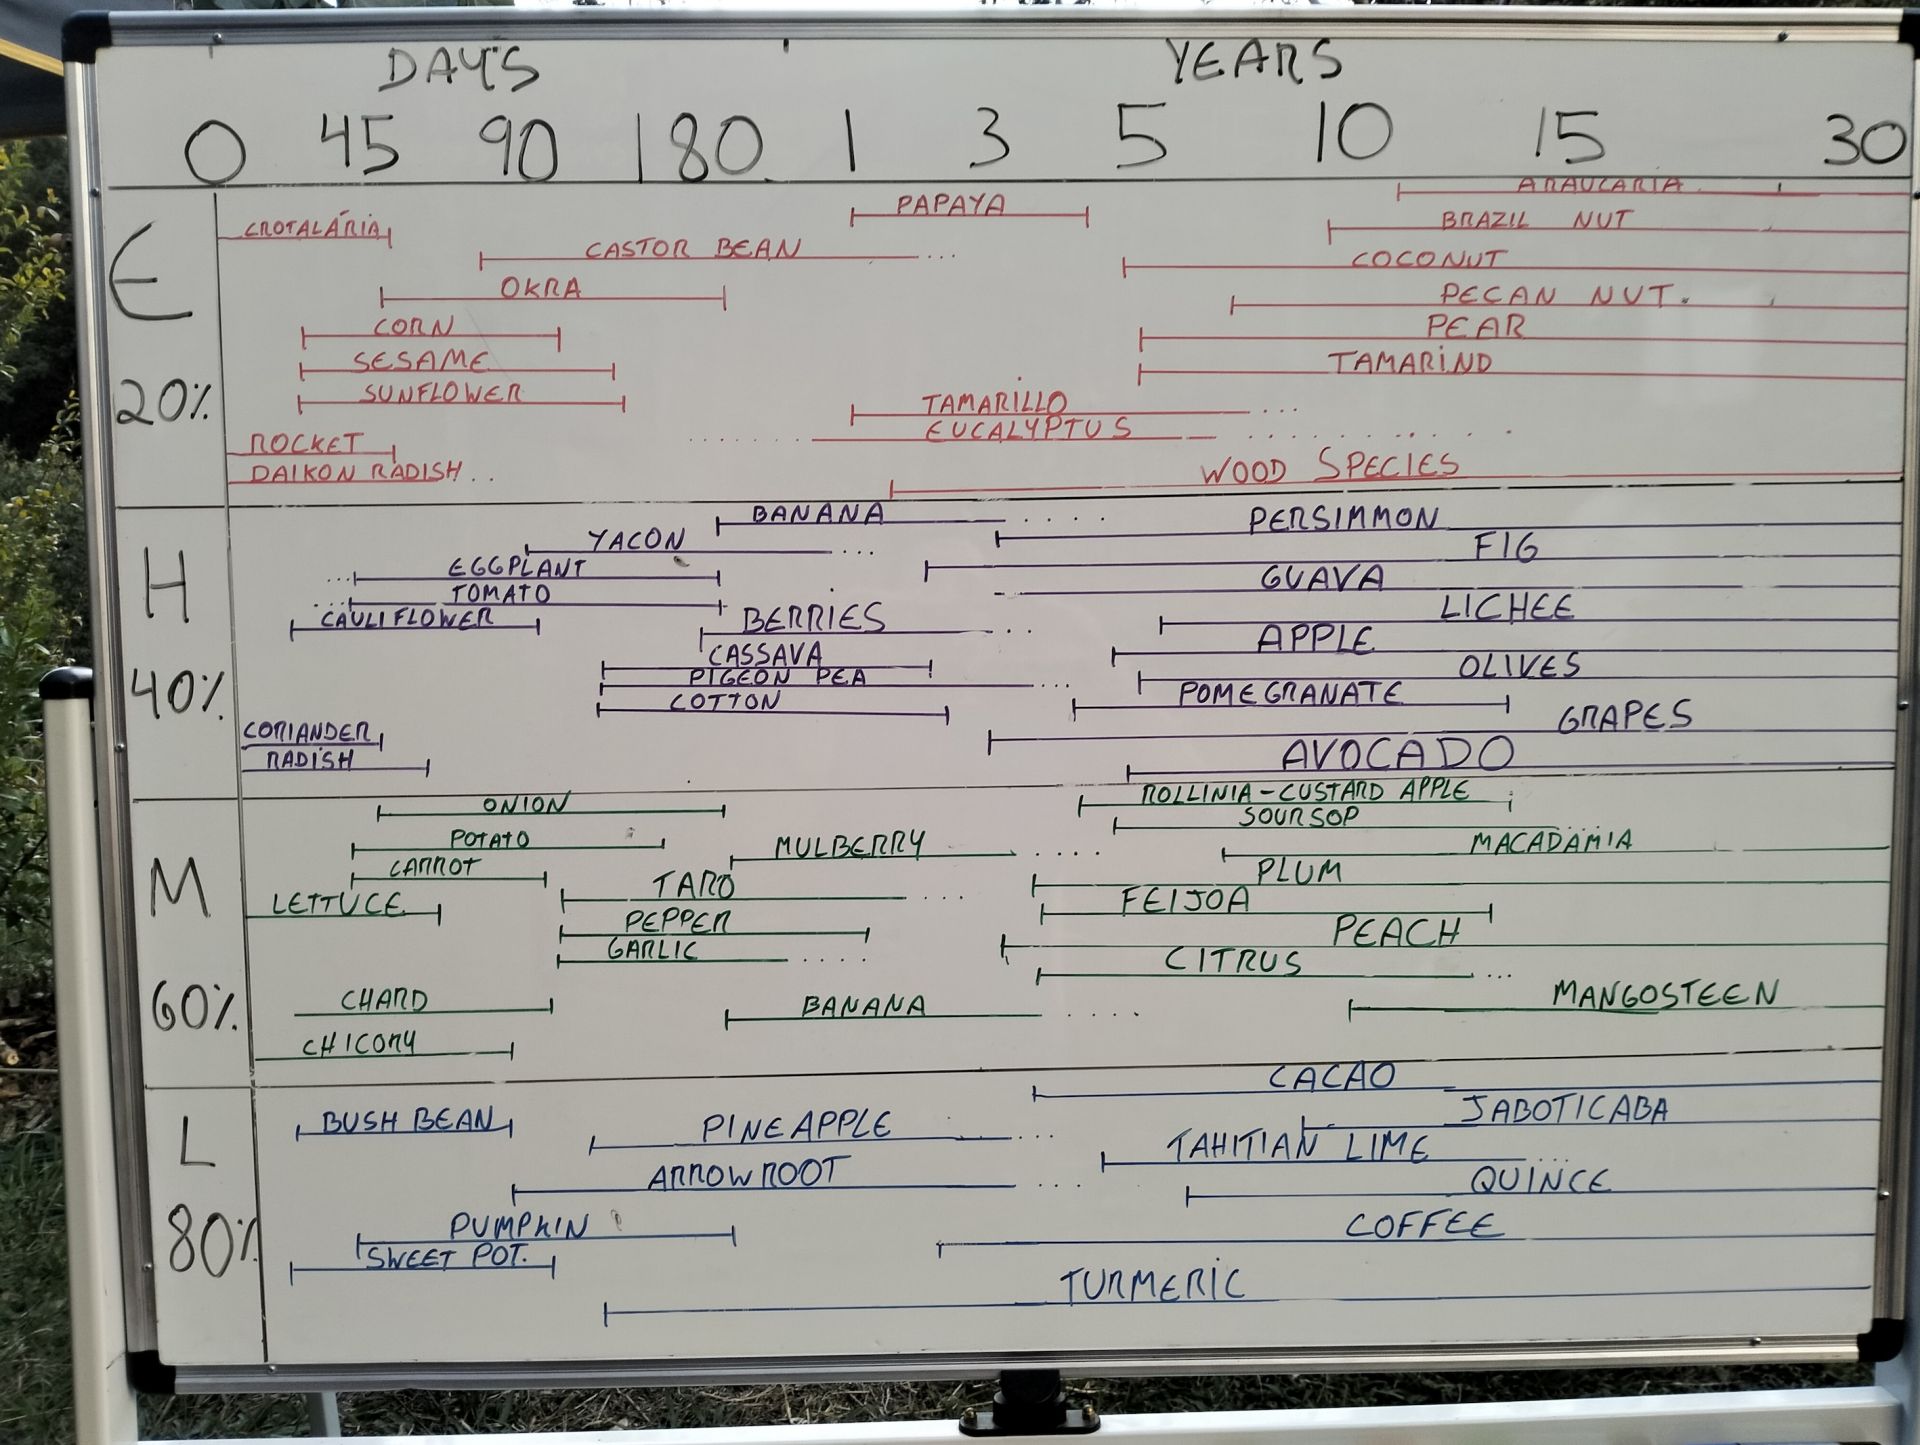 DAYS YEARS
0 45 90 180 1 3 5 10 15 30
E
20%
ARAUCARIA
PAPAYA
BRAZIL NUT
CROTALÁRIA
CASTOR BEAN ...
COCONUT
OKRA
PECAN NUT.
CORN
PEAR
SESAME
TAMARIND
SUNFLOWER
TAMARILLO ...
EUCALYPTUS
ROCKET
DAIKON RADISH ..
WOOD SPECIES
H
40%
BANANA ....
PERSIMMON
YACON ...
FIG
EGGPLANT
GUAVA
TOMATO
LICHEE
CAULIFLOWER
BERRIES ...
APPLE
CASSAVA
OLIVES
PIGEON PEA ...
POMEGRANATE
COTTON
GRAPES
CORIANDER
AVOCADO
RADISH
M
60%
ONION
ROLLINIA-CUSTARD APPLE
SOURSOP
POTATO
MULBERRY ....
MACADAMIA
CARROT
PLUM
TARO ...
LETTUCE
FEIJOA
PEPPER
PEACH
GARLIC ....
CITRUS ...
CHARD
BANANA ....
MANGOSTEEN
CHICORY
L
80%
CACAO
BUSH BEAN
JABOTICABA
PINEAPPLE ...
TAHITIAN LIME ...
ARROWROOT ...
QUINCE
PUMPKIN
COFFEE
SWEET POT.
TURMERIC